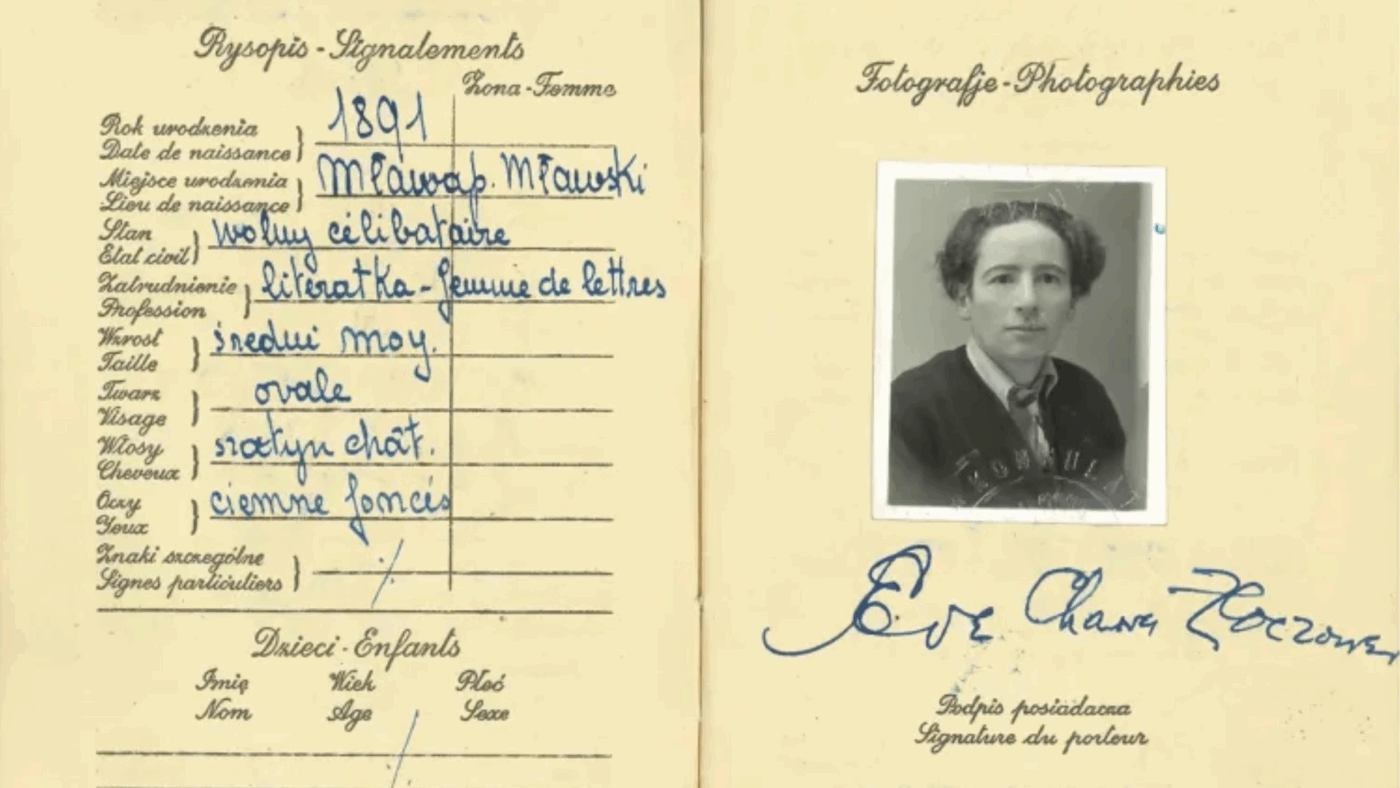 Rysopis - Signalements
Żona - Femme
Rok urodzenia
Date de naissance
1891
Miejsce urodzenia
Lieu de naissance
Mława p. Mławski
Stan
Etat civil
wolny célibataire
Zatrudnienie
Profession
literatka - femme de lettres
Wzrost
Taille
średni moy.
Twarz
Visage
ovale
Włosy
Cheveux
szatyn chât.
Oczy
Yeux
ciemne foncés
Znaki szczególne
Signes particuliers
Dzieci - Enfants
Imię Wiek Płeć
Nom Age Sexe
Fotografje - Photographies
Eve Chawa Zloczower
Podpis posiadacza
Signature du porteur